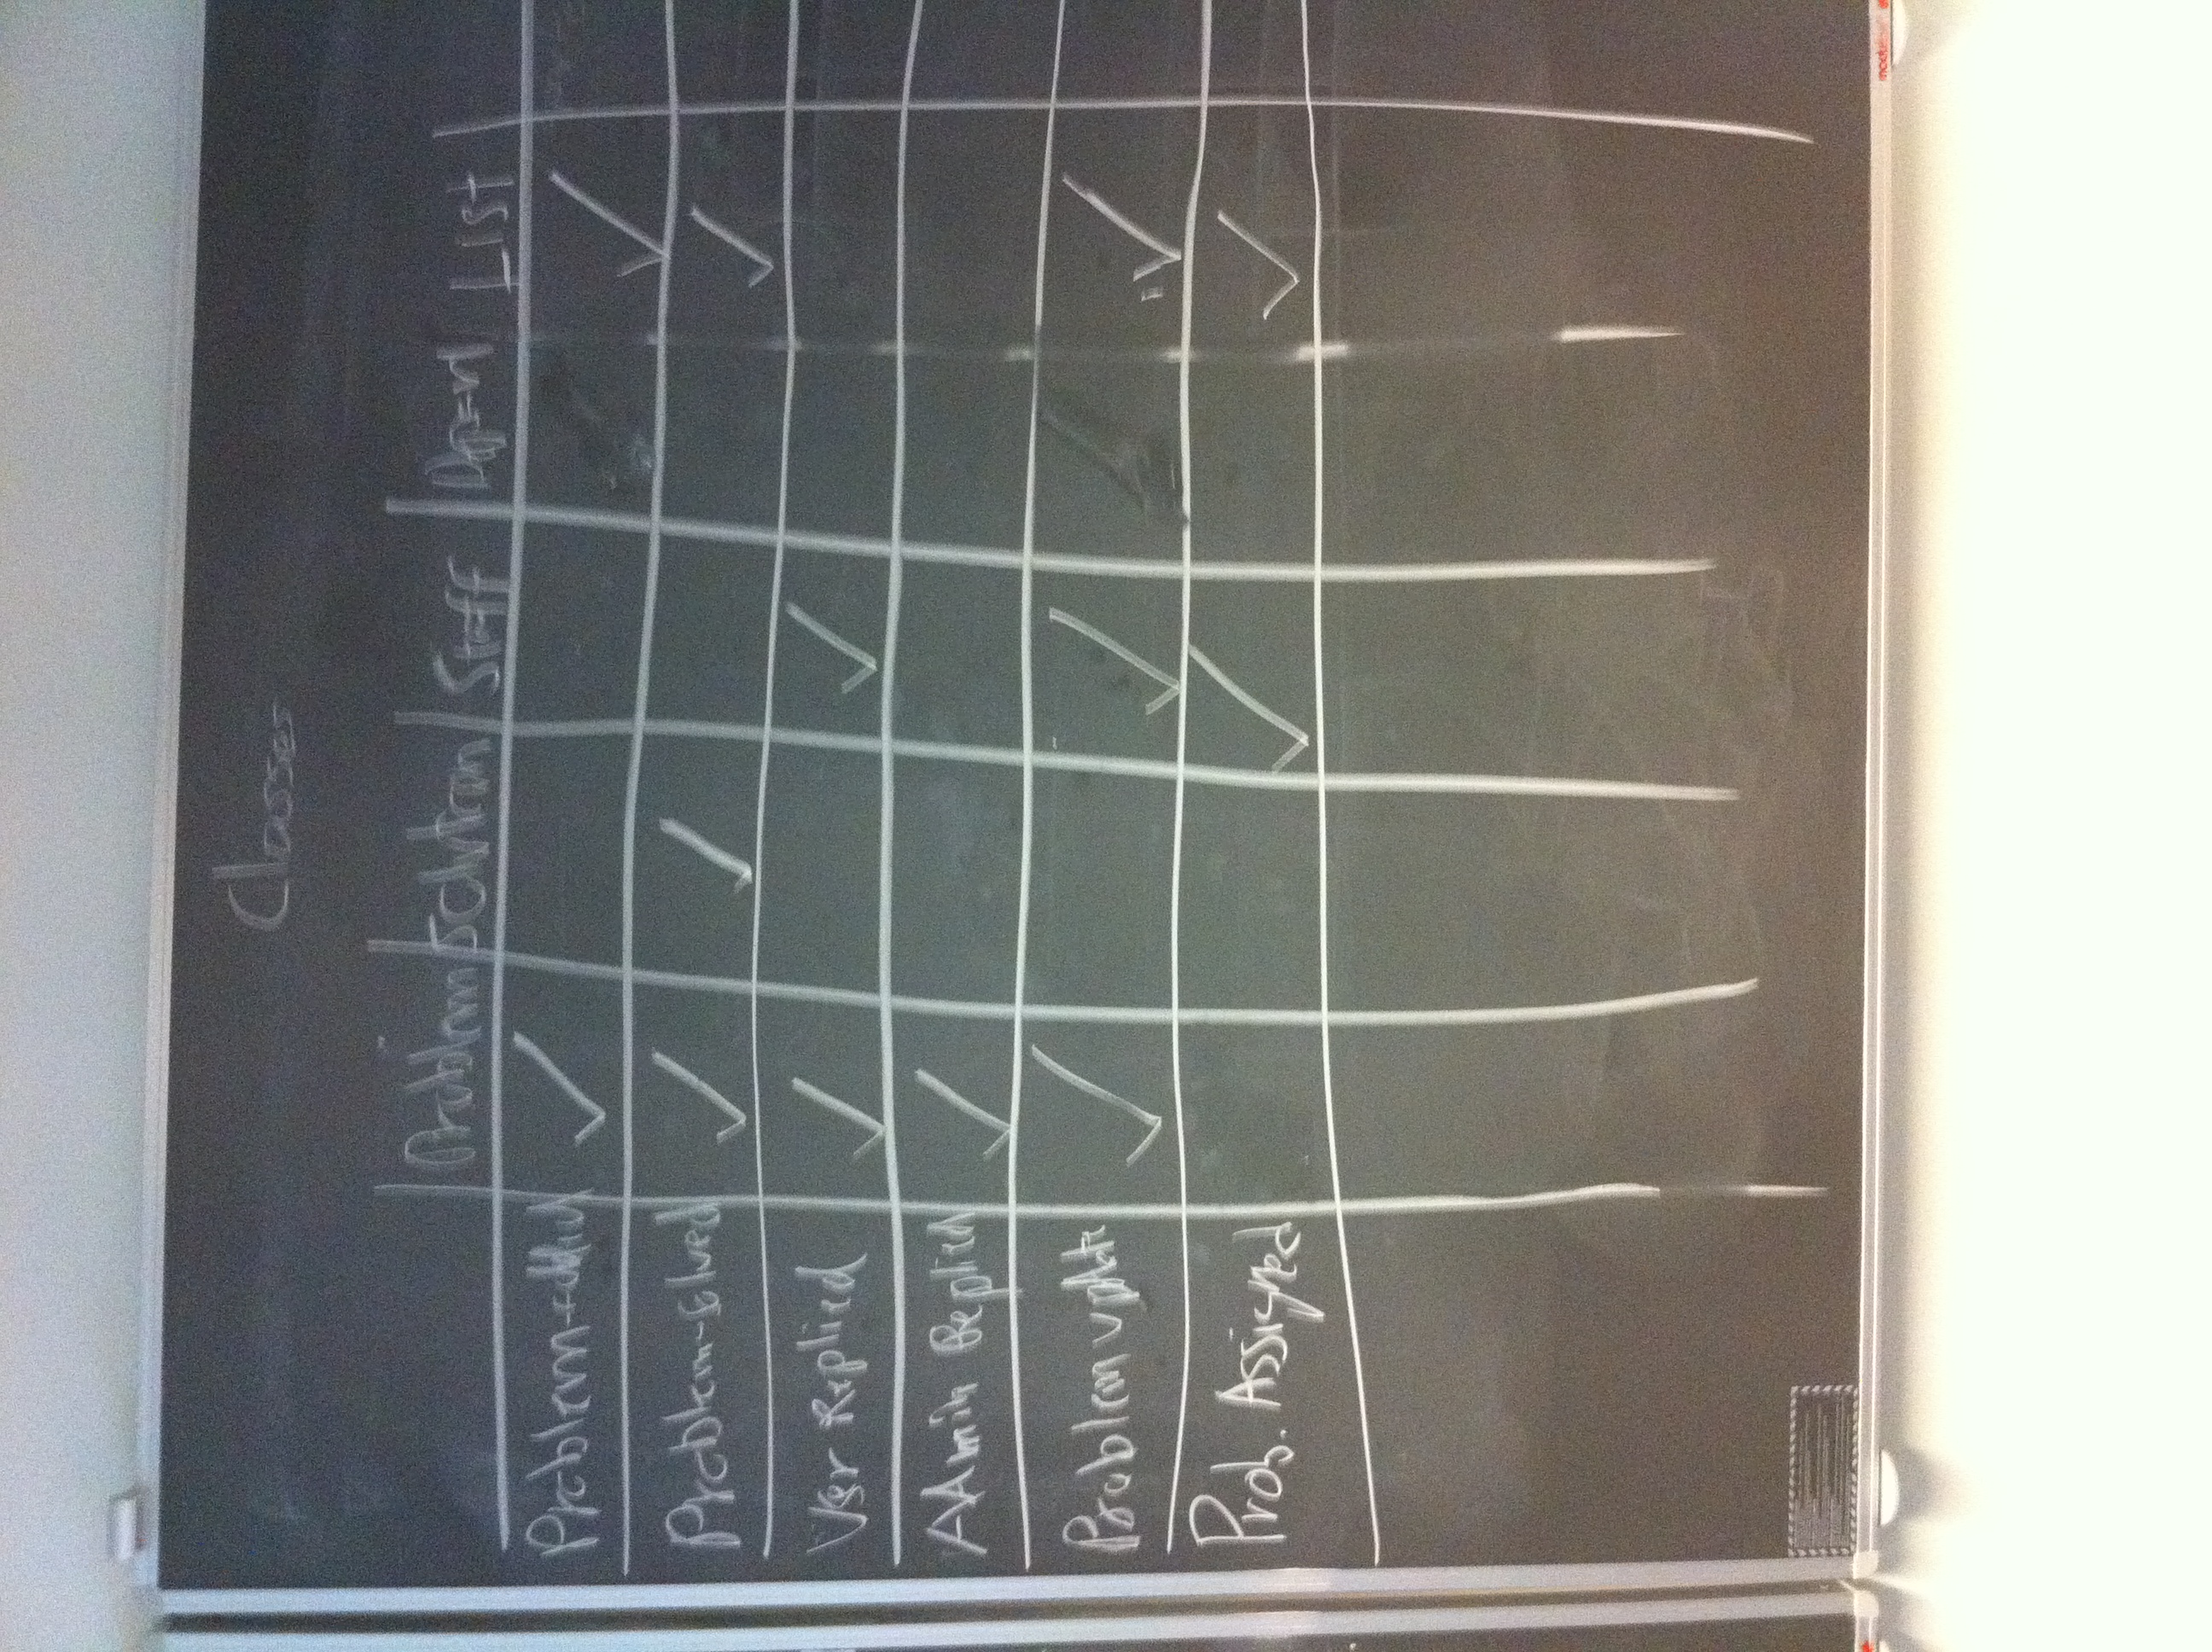 Classes
Problem Solution Staff List
Problem-added ✓ ✓
Problem-solved ✓ ✓ ✓
User Replied ✓ ✓
Admin Replied ✓
Problem update ✓ ✓ ✓
Prob. Assigned ✓ ✓